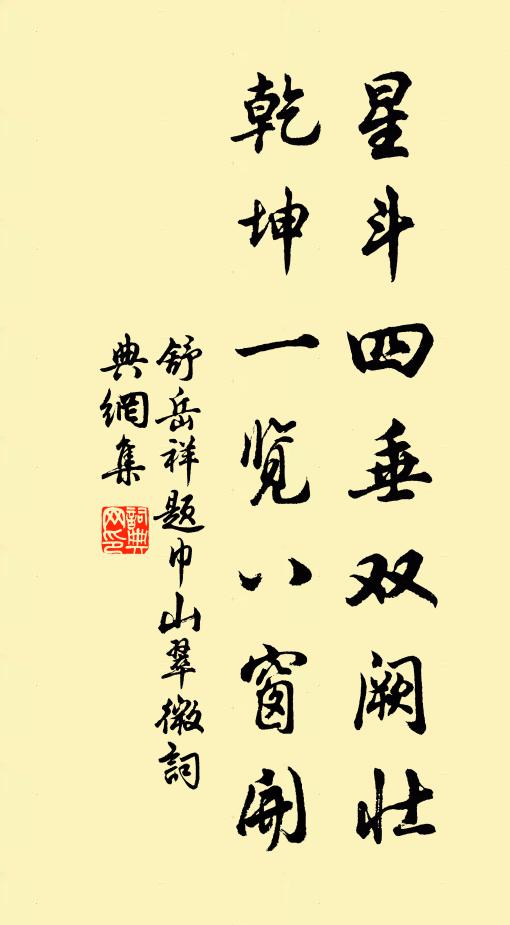 星斗四垂双阙壮
乾坤一览八窗開
舒岳祥题巾山翠微詞
典網集
詞典
网印